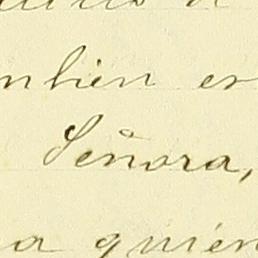 mbien es
Señora,
a quien